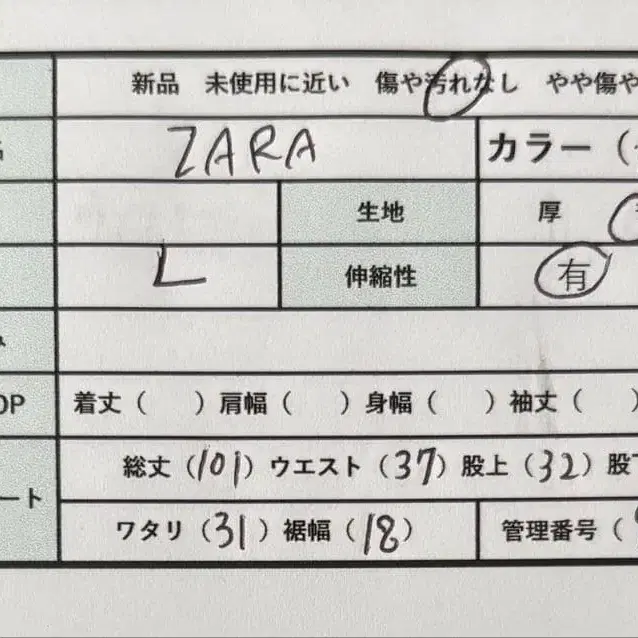 新品 未使用に近い 傷や汚れなし やや傷や
ZARA カラー（
生地 厚
L 伸縮性 有
OP 着丈（ ）肩幅（ ）身幅（ ）袖丈（ ）
総丈（101）ウエスト（37）股上（32）股下
ート
ワタリ（31）裾幅（18） 管理番号（